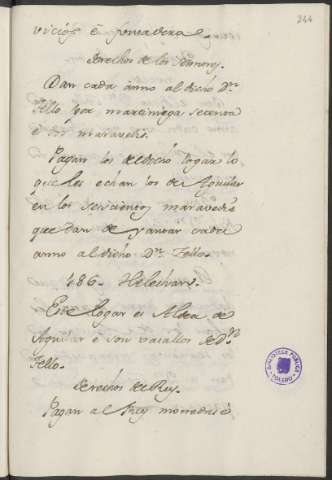 244
vicios é fonsadera.
derechos de los Señores.
Dan cada anno al dicho Dn.
Tello por martiniega secenta
é dos maravedis.
Pagan los del dicho logar lo
que les echan los de Aguilar
en los seiscientos maravedis
que dan de yantar cada
anno al dicho Dn. Tello.
486. Helechar.
Este logar es Aldea de
Aguilar é son vasallos de Dn.
Tello.
derechos del Rey.
Pagan al Rey monedas é
BIBLIOTECA PUBLICA
TOLEDO